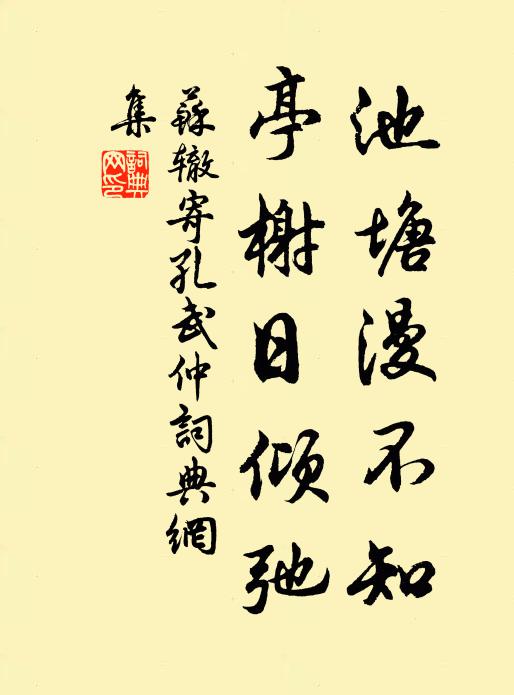 池塘漫不知
亭榭日倾弛
蘇辙寄孔武仲詞典網
集
詞典网印